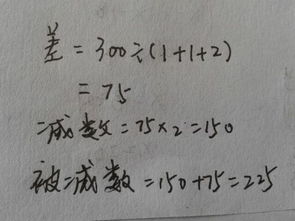 差=300÷(1+1+2)
=75
减数=75×2=150
被减数=150+75=225